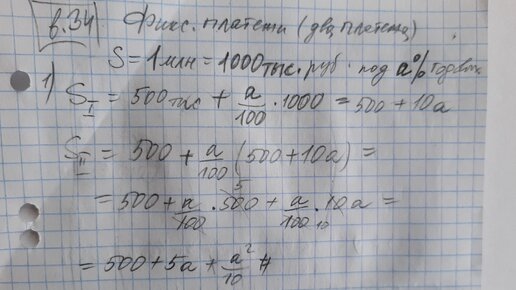 в.34 Фикс. платежи (два платежа)
S = 1 млн = 1000 тыс. руб. под a% годовых
1) S_I = 500 тыс + a/100 · 1000 = 500 + 10a
S_II = 500 + a/100 (500 + 10a) =
= 500 + a/100 · 500 5 + a/100 10 · 10a =
= 500 + 5a + a²/10 #